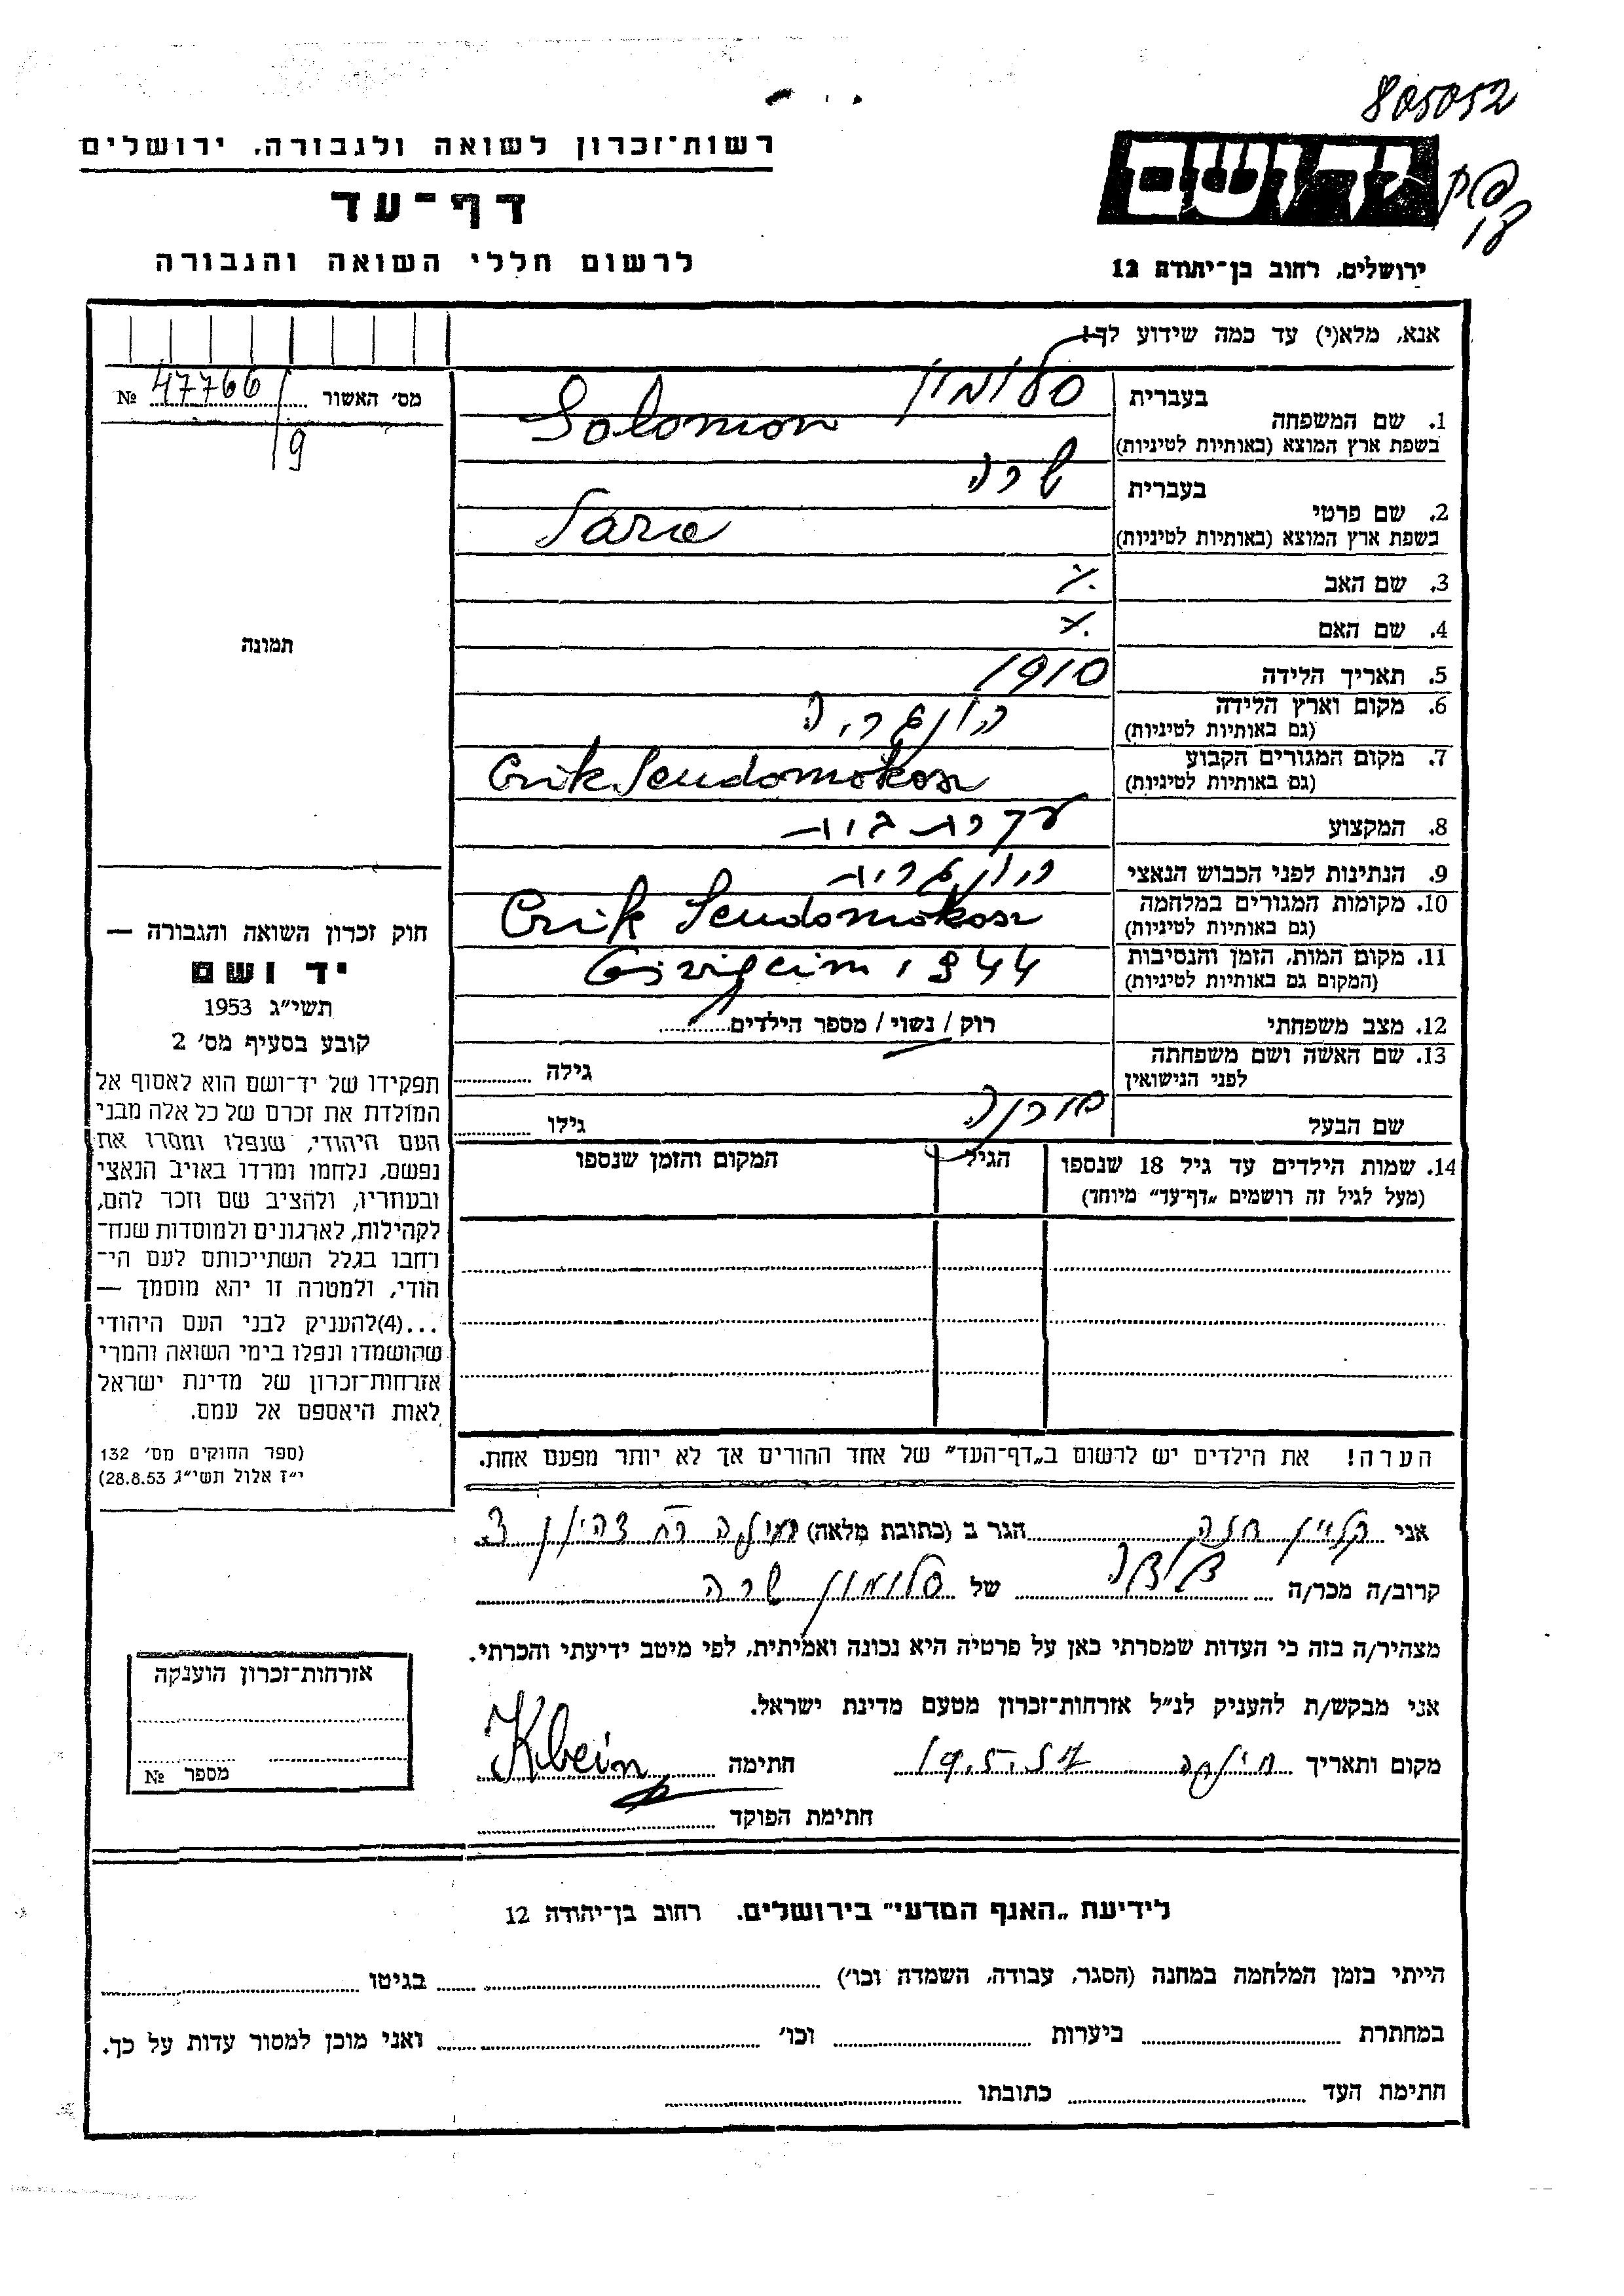 805052
רשות־זכרון לשואה ולגבורה, ירושלים
דף־עד
לרשום חללי השואה והגבורה
יד ושם
ירושלים, רחוב בן־יהודה 12
אנא, מלא(י) עד כמה שידוע לך!
מס׳ האשור 47766 №
9
תמונה
בעברית סלומון
1. שם המשפחה
בשפת ארץ המוצא (באותיות לטיניות) Solomon
בעברית שרה
2. שם פרטי
בשפת ארץ המוצא (באותיות לטיניות) Sara
3. שם האב
4. שם האם
5. תאריך הלידה 1910
6. מקום וארץ הלידה הונגריה
(גם באותיות לטיניות)
7. מקום המגורים הקבוע
(גם באותיות לטיניות)
8. המקצוע עקרת בית
9. הנתינות לפני הכבוש הנאצי הונגרית
10. מקומות המגורים במלחמה
(גם באותיות לטיניות)
11. מקום המות, הזמן והנסיבות 1944
(המקום גם באותיות לטיניות)
12. מצב משפחתי רוק / נשוי / מספר הילדים
13. שם האשה ושם משפחתה
לפני הנישואין גילה
שם הבעל גילו
14. שמות הילדים עד גיל 18 שנספו הגיל המקום והזמן שנספו
(מעל לגיל זה רושמים „דף־עד״ מיוחד)
הערה! את הילדים יש לרשום ב„דף־העד״ של אחד ההורים אך לא יותר מפעם אחת.
חוק זכרון השואה והגבורה —
יד ושם
תשי״ג 1953
קובע בסעיף מס׳ 2
תפקידו של יד־ושם הוא לאסוף אל
המולדת את זכרם של כל אלה מבני
העם היהודי, שנפלו ומסרו את
נפשם, נלחמו ומרדו באויב הנאצי
ובעוזריו, ולהציב שם וזכר להם,
לקהילות, לארגונים ולמוסדות שנח־
רחבו בגלל השתייכותם לעם הי־
הודי, ולמטרה זו יהא מוסמך —
...(4)להעניק לבני העם היהודי
שהושמדו ונפלו בימי השואה והמרי
אזרחות־זכרון של מדינת ישראל
לאות היאספם אל עמם.
(ספר החוקים מס׳ 132
י״ז אלול תשי״ג 28.8.53)
אני קליין חנה הגר ב (כתובת מלאה) חיפה רח
קרוב/ה מכר/ה של סלומון שרה
מצהיר/ה בזה כי העדות שמסרתי כאן על פרטיה היא נכונה ואמיתית, לפי מיטב ידיעתי והכרתי.
אני מבקש/ת להעניק לנ״ל אזרחות־זכרון מטעם מדינת ישראל.
מקום ותאריך חיפה 19.5.57 חתימה Klein
חתימת הפוקד
אזרחות־זכרון הוענקה
מספר №
לידיעת „האגף המדעי״ בירושלים. רחוב בן־יהודה 12
הייתי בזמן המלחמה במחנה (הסגר, עבודה, השמדה וכו׳) בגיטו
במחתרת ביערות וכו׳ ואני מוכן למסור עדות על כך.
חתימת העד כתובתו